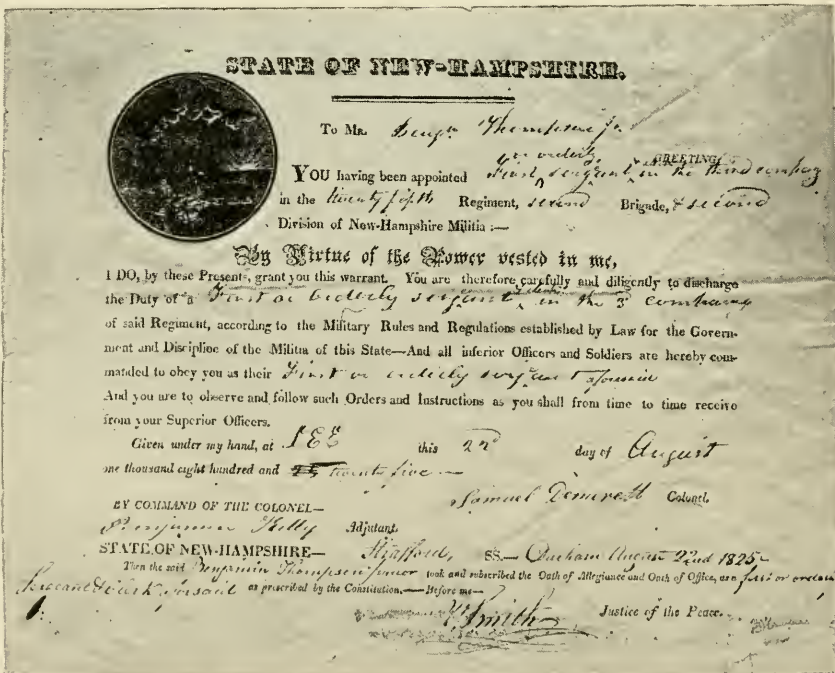 STATE OF NEW-HAMPSHIRE.
To Mr. Benjn Thompson jr.
GREETING
or orderly
YOU having been appointed First sergant in the third company
in the twenty fifth Regiment, second Brigade, & second
Division of New-Hampshire Militia :—
By Virtue of the Power vested in me,
I DO, by these Presents, grant you this warrant. You are therefore carefully and diligently to discharge
the Duty of a First or orderly sergant in the 3d company
of said Regiment, according to the Military Rules and Regulations established by Law for the Govern-
ment and Discipline of the Militia of this State—And all inferior Officers and Soldiers are hereby com-
manded to obey you as their First or orderly sergant aforesaid
And you are to observe and follow such Orders and Instructions as you shall from time to time receive
from your Superior Officers.
Given under my hand, at LEE this 22d day of August
one thousand eight hundred and twenty five —
Samuel Demeritt Colonel.
BY COMMAND OF THE COLONEL—
Benjamin Kelly Adjutant.
STATE OF NEW-HAMPSHIRE— Strafford, SS.— Durham August 22nd 1825—
Then the said Benjamin Thompson junior took and subscribed the Oath of Allegiance and Oath of Office, as a first or orderly
Sergeant & clerk aforesaid as prescribed by the Constitution.—Before me—
Smith Justice of the Peace.